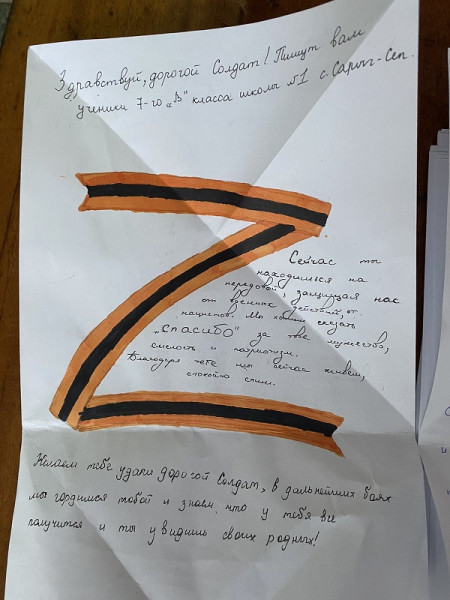 Здравствуй, дорогой Солдат! Пишут вам
ученики 7-го „В" класса школы №1 с. Сарыг-Сеп.
Сейчас ты
находишься на
передовой, защищая нас
от военных действий, от
нацистов. Мы хотим сказать
„Спасибо" за твое мужество,
смелость и патриотизм.
Благодаря тебе мы сейчас живем,
спокойно спим.
Желаем тебе удачи дорогой Солдат, в дальнейших боях
мы гордимся тобой и знаем, что у тебя все
получится и ты увидишь своих родных!